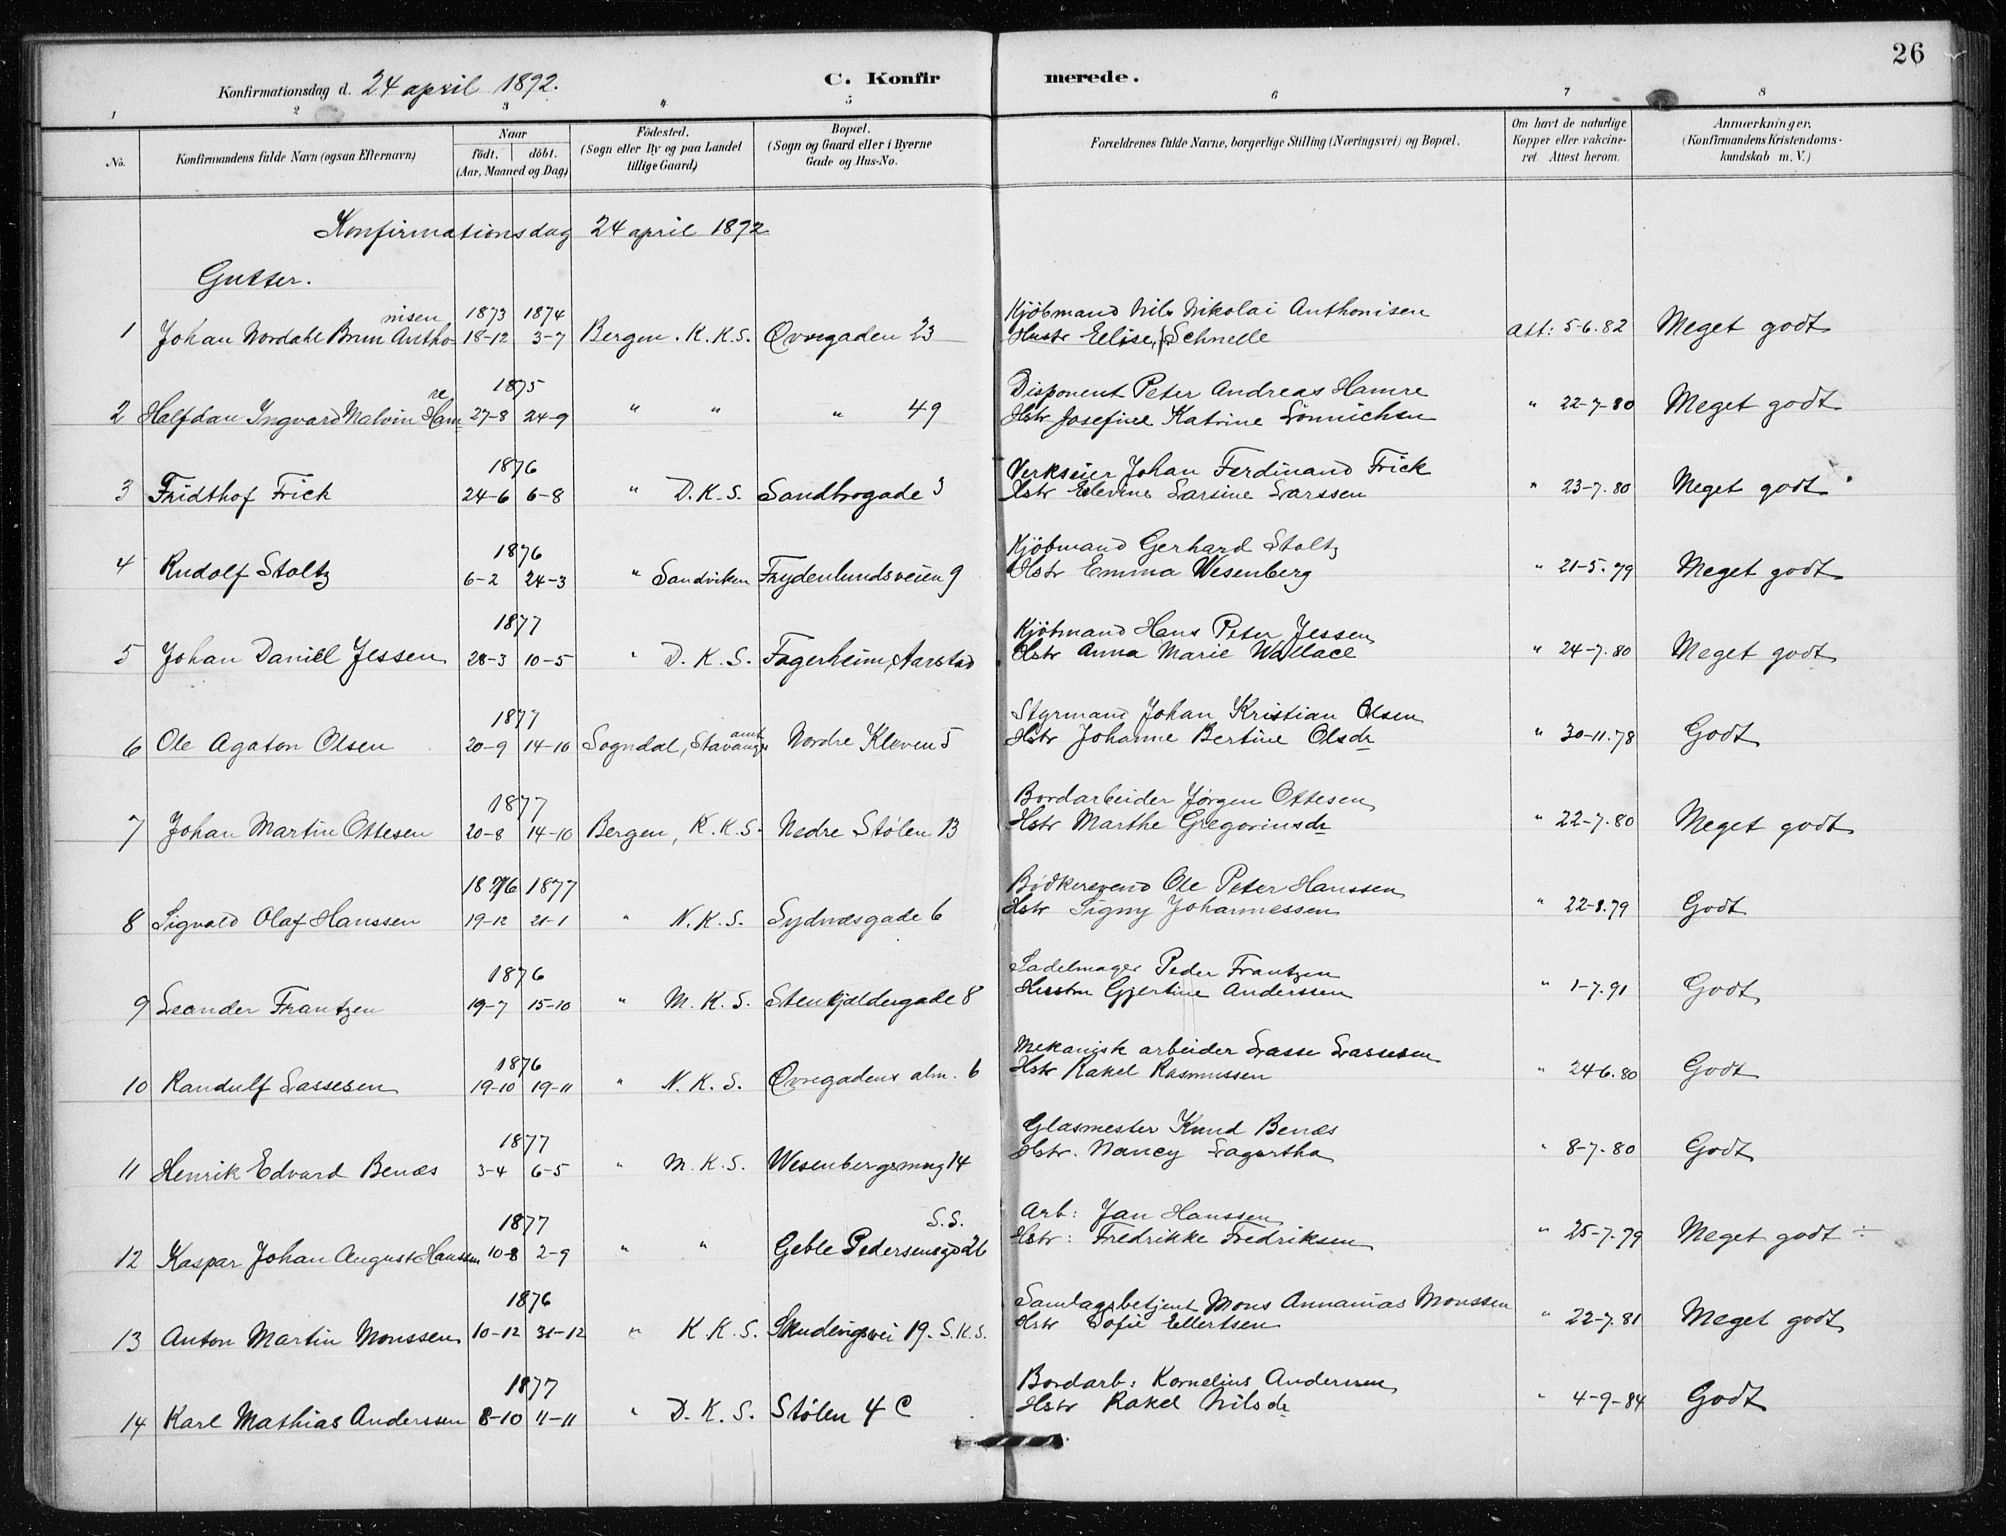 26
Konfirmationsdag d. 24 april 1892.
C. Konfirmerede.
1 2 3 4 5 6 7 8
No. Konfirmandens fulde Navn (ogsaa Efternavn) Naar födt. döbt. (Aar, Maaned og Dag) Födested. (Sogn eller By og paa Landet tillige Gaard) Bopæl. (Sogn og Gaard eller i Byerne Gade og Hus-No. Forældrenes fulde Navne, borgerlige Stilling (Næringsvei) og Bopæl. Om havt de naturlige Kopper eller vakcineret. Attest herom. Anmærkninger, (Konfirmandens Kristendomskundskab m. V.)
Konfirmationsdag 24 april 1892
Gutter.
nisen 1873 1874 Kjöbmand Nils Nikolai Anthonisen
1 Johan Nordahl Brun Antho- 18-12 3-7 Bergen. K.K.S. Øvregaden 23 Hustr Eelise, f. Schnelle att: 5-6.82 Meget godt
re 1875 Disponent Peter Andreas Hamre
2 Halfdan Ingvard Malvin Ham 27-8 24-9 " " " 49 Hstr Josefine Katrine Lönnichen " 22-7.80 Meget godt
1876 Verkseier Johan Ferdinand Frick
3 Fridthof Frick 24-6 6-8 " D.K.S. Sandbrogade 3 Hstr Larsine Larssen " 23-7.80 Meget godt
1876 Kjöbmand Gerhard Stoltz
4 Rudolf Stoltz 6-2 24-3 " Sandviken Frydenlundsveien 9 Hstr Emma Wesenberg " 21-5.79 Meget godt
1877 Kjöbmand Hans Peter Jessen
5 Johan Daniel Jessen 28-3 10-5 " D.K.S. Fagerheim, Aarstad Hstr Anna Marie Wallace " 24-7.80 Meget godt
1877 amt Styrmand Johan Kristian Olsen
6 Ole Agaton Olsen 20-9 14-10 Sogndal, Stavanger Nordre Kleven 5 Hstr Johanne Bertine Olsdr " 30-11.78 Godt
1877 Bordarbeider Jørgen Ottesen
7 Johan Martin Ottesen 20-8 14-10 Bergen, K.K.S. Nedre Stølen 13 Hstr Marthe Gregoriusdr " 22-7.80 Meget godt
1876 1877 Bödkersvend Ole Peter Hanssen
8 Sigvald Olaf Hanssen 19-12 21-1 " N.K.S. Sydnæsgade 6 Hstr Signy Johannessen " 22-8.79 Godt
1876 Sadelmager Peder Frantzen
9 Leonder Frantzen 19-7 15-10 " M.K.S. Stenkjeldergade 8 Hustru Gjertine Anderssen " 1-7.91 Godt
1876 Mekanisk arbeider Lasse Lassesen
10 Randulf Lassesen 19-10 19-11 " N.K.S. Øvregadens alm. 6 Hstr Rakel Rasmussen " 24-6.80 Godt
1877 Glasmester Knud Benæs
11 Henrik Edvard Benæs 3-4 6-5 " M.K.S. Wesenbergsmug 14 Hstr. Nancy Lagertha " 8-7.80 Godt
1877 S.S. Arb: Jan Hanssen
12 Kaspar Johan August Hanssen 10-8 2-9 " " Geble Pedersensgd 26 Hstr: Fredrikke Fredriksen " 25-7.79 Meget godt ÷
1876 Samlagsbetjent Mons Annanias Monssen
13 Anton Martin Monssen 10-12 31-12 " K.K.S. Skudevigsvei 19. S.K.S. Hstr Sofie Ellertsen " 22-7.81 Meget godt
1877 Bordarb: Kornelius Anderssen
14 Karl Mathias Anderssen 8-10 11-11 " D.K.S. Stølen 4 C Hstr Rakel Nilsdr " 4-9-84 Godt